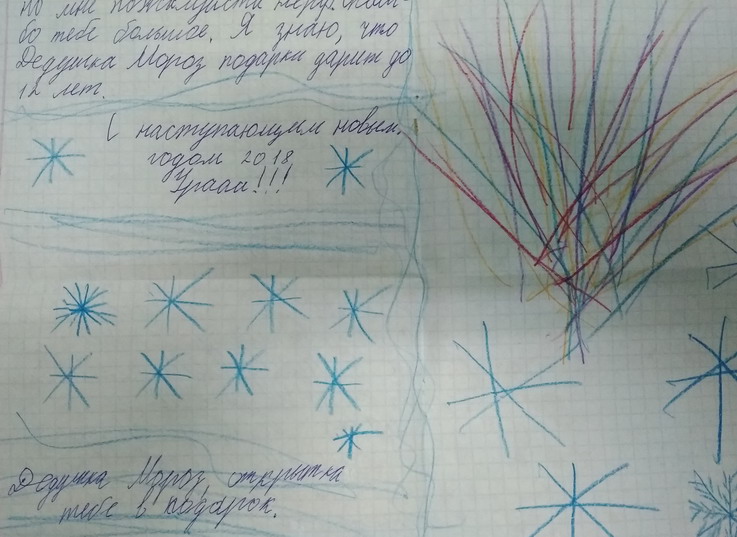 но мне пожжалуйста нерф. Спаси-
бо тебе большое. Я знаю, что
Дедушка Мороз подарки дарит до
12 лет.
С наступающим новым
годом 2018
Урааа!!!
Дедушка Мороз, открытка
тебе в подарок.